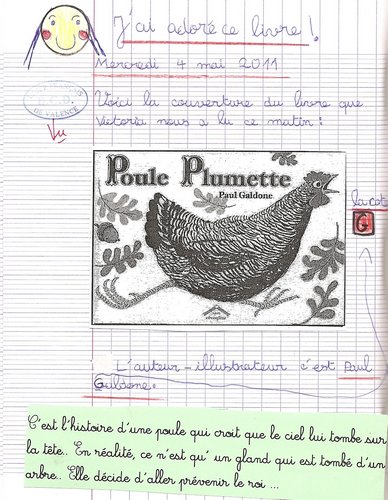 J'ai adoré ce livre !
Mercredi 4 mai 2011
DE VALENCE
Vu
Voici la couverture du livre que
Victoria nous a lu ce matin :
Poule Plumette
Paul Galdone
la cot
G
L'auteur-illustrateur c'est Paul
Galdone.
C'est l'histoire d'une poule qui croit que le ciel lui tombe sur
la tête.. En réalité, ce n'est qu' un gland qui est tombé d'un
arbre.. Elle décide d'aller prévenir le roi ...